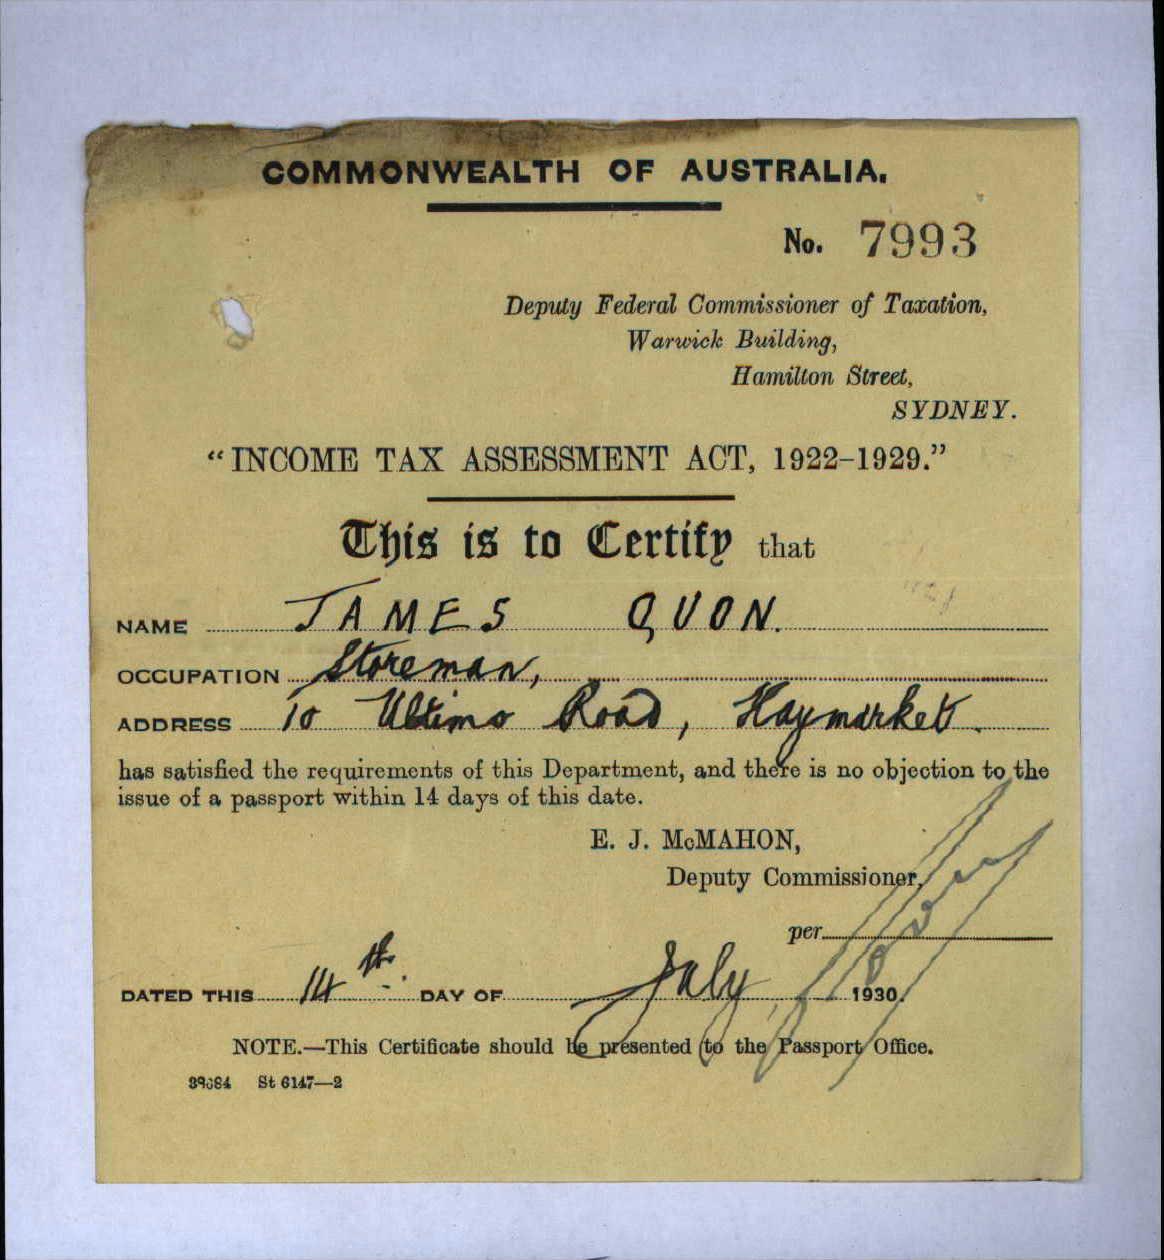 COMMONWEALTH OF AUSTRALIA.
No. 7993
Deputy Federal Commissioner of Taxation,
Warwick Building,
Hamilton Street,
SYDNEY.
"INCOME TAX ASSESSMENT ACT, 1922–1929."
This is to Certify that
NAME JAMES QUON.
OCCUPATION Storeman,
ADDRESS 10 Ultimo Road, Haymarket.
has satisfied the requirements of this Department, and there is no objection to the
issue of a passport within 14 days of this date.
E. J. McMAHON,
Deputy Commissioner,
per
DATED THIS 14th. DAY OF July, 1930.
NOTE.—This Certificate should be presented to the Passport Office.
St 6147—2